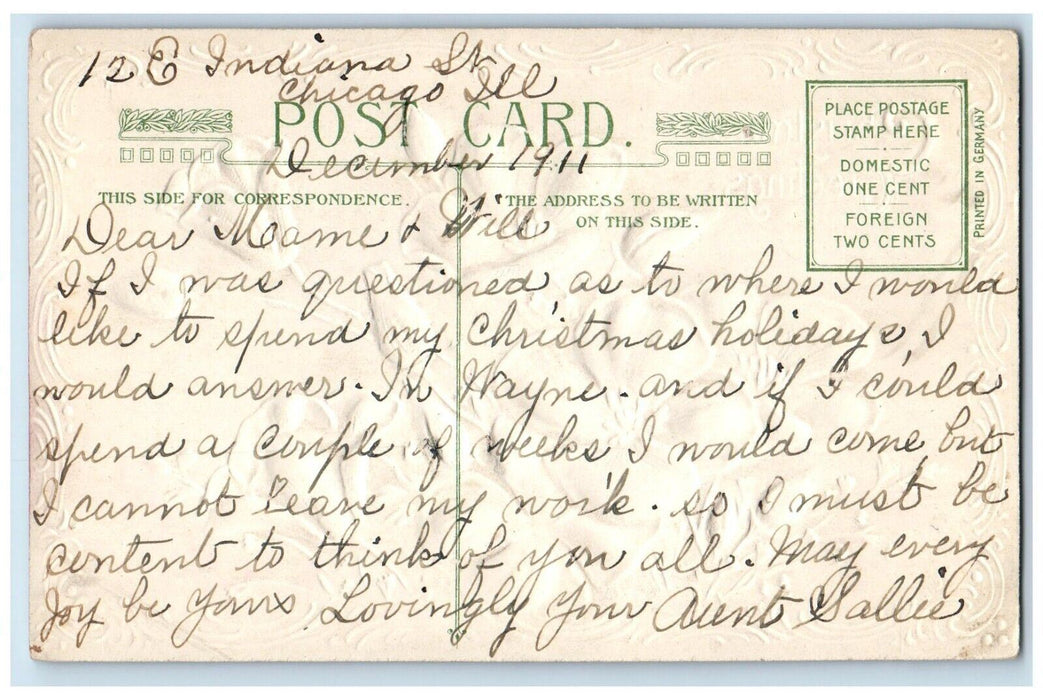 12 E Indiana St
Chicago Ill
POST CARD.
December 1911
THIS SIDE FOR CORRESPONDENCE.
THE ADDRESS TO BE WRITTEN
ON THIS SIDE.
PLACE POSTAGE
STAMP HERE
DOMESTIC
ONE CENT
FOREIGN
TWO CENTS
PRINTED IN GERMANY
Dear Mame & Will
If I was questioned as to where I would
like to spend my Christmas holidays, I
would answer. In Wayne. and if I could
spend a couple of weeks I would come but
I cannot leave my work. so I must be
content to think of you all. May every
Joy be yours Lovingly your Aunt Sallie